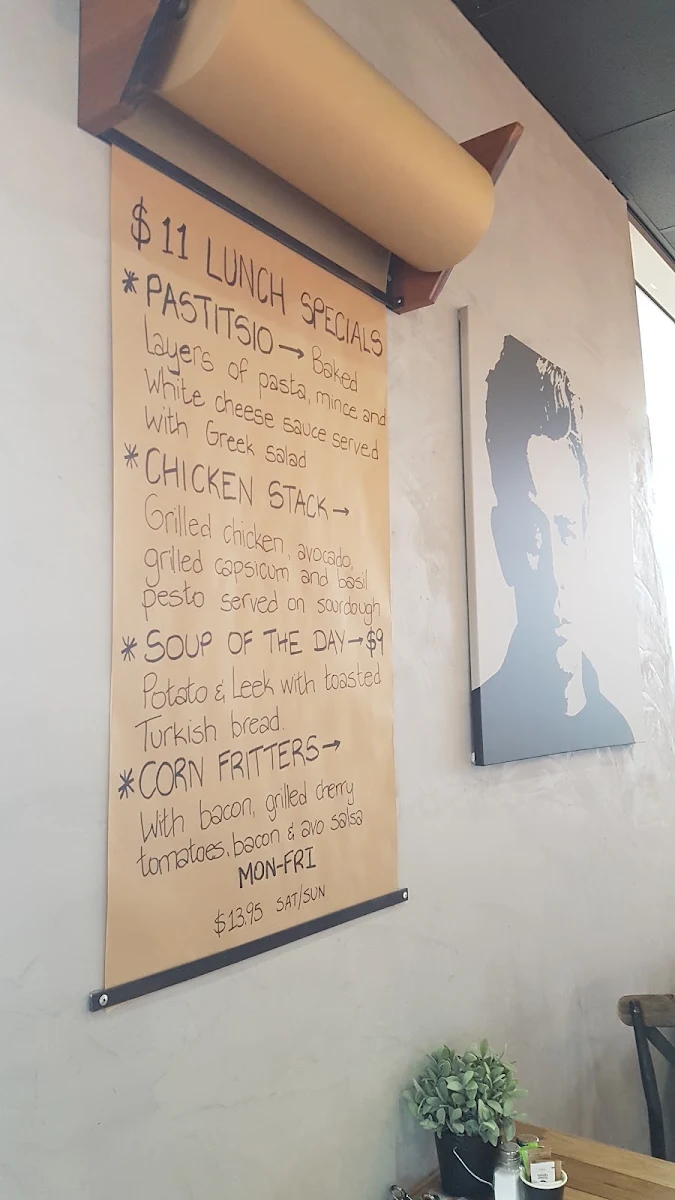 $11 LUNCH SPECIALS
* PASTITSIO → Baked
layers of pasta, mince and
white cheese sauce served
with Greek salad
* CHICKEN STACK →
Grilled chicken, avocado,
grilled capsicum and basil
pesto served on sourdough
* SOUP OF THE DAY → $9
Potato & Leek with toasted
Turkish bread.
* CORN FRITTERS →
With bacon, grilled cherry
tomatoes, bacon & avo salsa
MON-FRI
$13.95 SAT/SUN